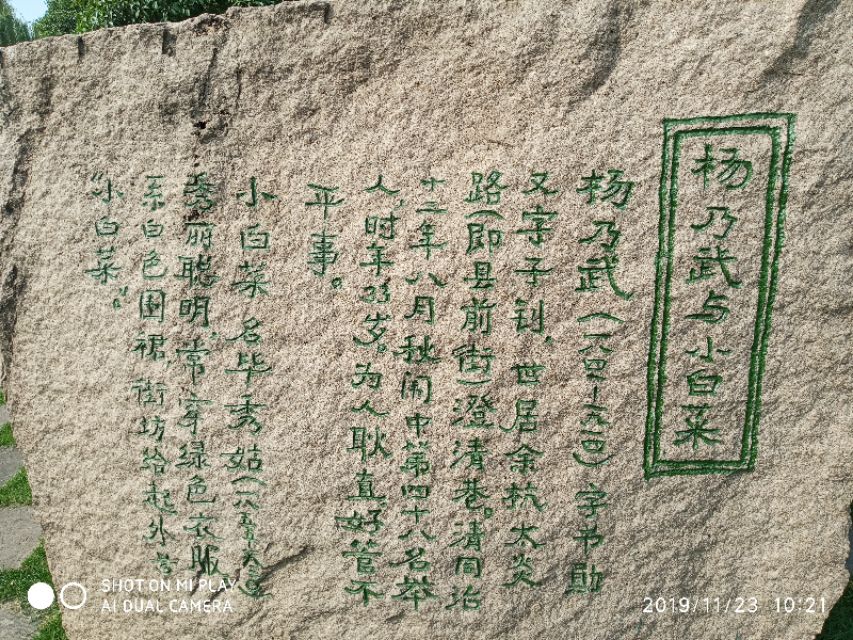 杨乃武与小白菜
杨乃武(一八四一一九一四)字书勋
又字子钊,世居余杭太炎
路(即县前街)澄清巷。清同治
十二年八月秋闱中第四十八名举
人,时年33岁。为人耿直好管不
平事。
小白菜 名毕秀姑
秀丽聪明,常穿绿色衣服
系白色围裙,街坊给起外号
“小白菜”。
SHOT ON MI PLAY
AI DUAL CAMERA
2019/11/23 10:21